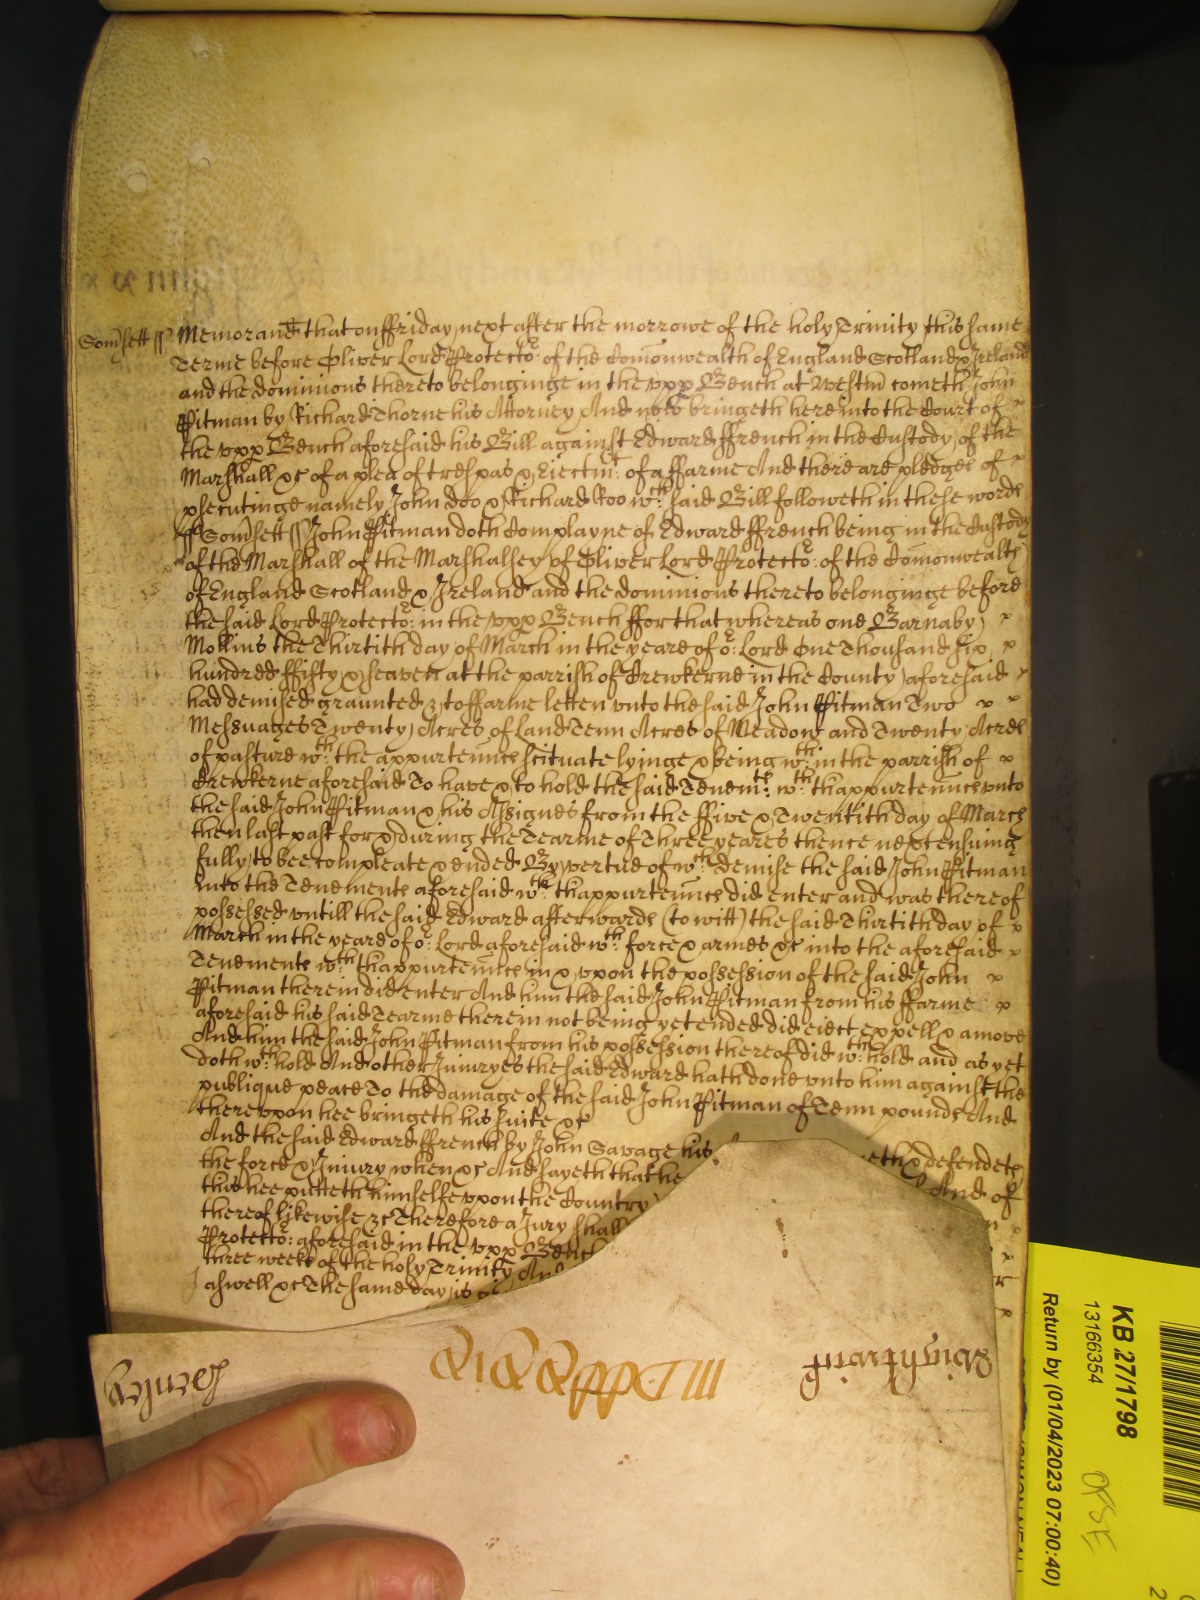 Som̃sett ss Memorand that on ffriday next after the morrowe of the holy Trinity this same
Terme before Oliver Lord Protectoʳ: of the Com̃onwealth of England Scotland & Ireland
and the dominions thereto belonginge in the vpp Bench at Westm̃ cometh John
Pitman by Richard Thorne his Attorney And now bringeth here into the Court of
the vpp Bench aforesaid his Bill against Edward ffrench in the Custody of the
Marshall &c of a plea of trespas & Eiectmᵗ: of a ffarme And there are pledges of
psecutinge namely John Doo & Richard Roo wᶜʰ: said Bill followeth in these words
ss Som̃sett ss John Pitman doth Complayne of Edward ffrench being in the Custody
of the Marshall of the Marshallsey of Oliver Lord Protectoʳ: of the Com̃onwealth
of England Scotland & Ireland and the dominions thereto belonginge before
the said Lord Protectoʳ: in the vpp Bench ffor that whereas one Barnaby
Mollins the Thirtith day of March in the yeare of oʳ: Lord One Thousand six
hundred ffifty & seaven at the parrish of Crewkerne in the County aforesaid
had demised graunted & to ffarme letten vnto the said John Pitman Two
Messuages Twenty Acres of Land Tenn Acres of Meadow and Twenty Acres
of pasture wᵗʰ: the appurtenncs scituate lyinge & being wᵗʰ: in the parrish of
Crewkerne aforesaid To have & to hold the said Tenemᵗˢ: wᵗʰ: thappurtenncs vnto
the said John Pitman & his Assignes from the ffive & Twentith day of March
then last past for & during the Tearme of Three yeares thence next ensuing
fully to bee compleate & ended By vertue of wᶜʰ: demise the said John Pitman
into the Tenements aforesaid wᵗʰ: thappurtenncs did enter and was thereof
possessed vntill the said Edward afterwards (to witt) the said Thirtith day of
March in the yeare of oʳ: Lord aforesaid wᵗʰ: force & armes &c into the aforesaid
Tenements wᵗʰ: thappurtenncs in & vpon the possession of the said John
Pitman therein did enter And him the said John Pitman from his ffarme
aforesaid his said Tearme therein not being yet ended did eiect expell & amove
And him the said John Pitman from his possession thereof did wᵗʰ: hold and as yet
doth wᵗʰ: hold And other Iniuryes the said Edward hath done vnto him against the
publique peace To the damage of the said John Pitman of Tenn pounds And
therevpon hee bringeth his suite &c
And the said Edward ffrench by John Savage his eth & defendeth
the force & Iniury when &c And sayeth that he And of
this hee putteth himselfe vpon the Country
thereof likewise &c Therefore a Jury shall
Protectoʳ: aforesaid in the vpp Bench
three weeks of the holy Trinity And
aswell &c The same day is
Henley
Wightwick
KB 27/1798
13166354
Return by (01/04/2023 07:00:40)